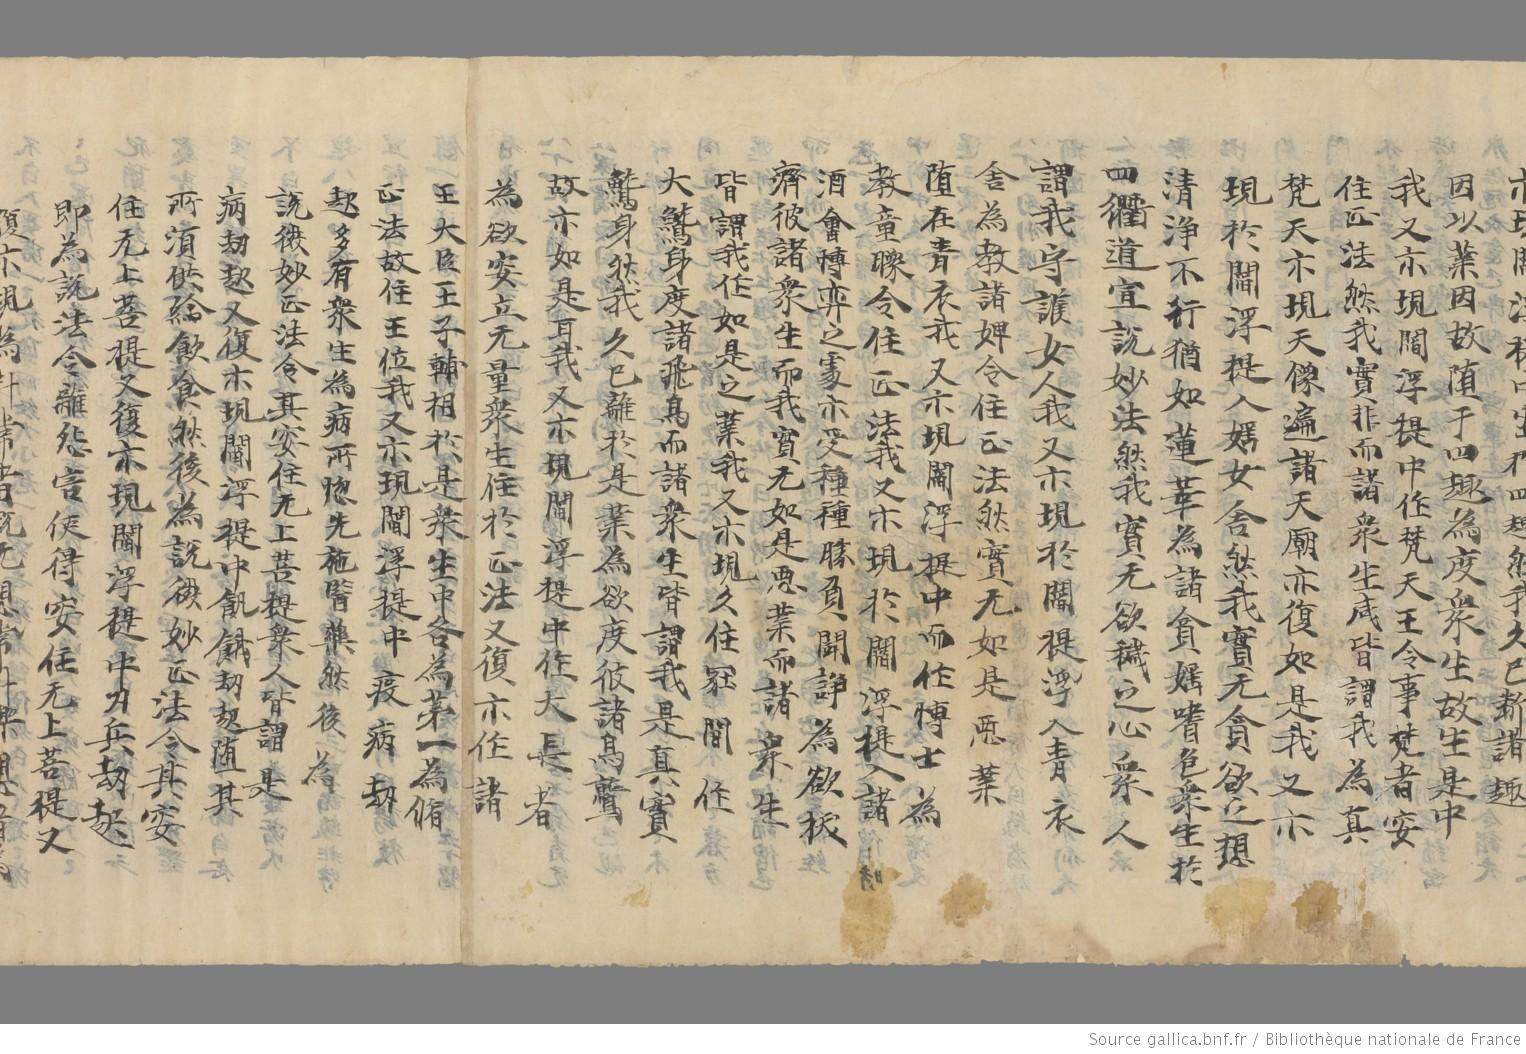 因以業因故墮于四趣為度衆生故生是中
我又示現閻浮提中作梵天王令事梵者安
住正法然我實非而諸衆生咸皆謂我為真
梵天示現天像遍諸天廟亦復如是我又示
現於閻浮提入婬女舍然我實无貪欲之想
清淨不行猶如蓮華為諸貪婬嗜色衆生於
四衢道宣說妙法然我實无欲穢之心衆人
謂我守護女人我又示現於閻提浮入青衣
舍為教諸婢令住正法然實无如是惡業
墮在青衣我又示現閻浮提中而作博士為
教童矇令住正法我又示現於閻浮提入諸
酒會博弈之處示受種種勝負鬪諍為欲拔
濟彼諸衆生而我實无如是惡業而諸衆生
皆謂我作如是之業我又示現久住冢間作
大鷲身度諸飛鳥而諸衆生皆謂我是真實
鷲身然我久已離於是業為欲度彼諸鳥鷲
故示如是耳我又示現閻浮提中作大長者
為欲安立无量衆生住於正法又復示作諸
王大臣王子輔相於是衆生中各為第一為脩
正法故住王位我又示現閻浮提中疫病劫
起多有衆生為病所惱先施醫藥然後為
說微妙正法令其安住无上菩提衆人皆謂是
病劫起又復示現閻浮提中飢餓劫起隨其
所須供給飲食然後為說微妙正法令其安
住无上菩提又復示現閻浮提中刀兵劫起
即為說法令離怨害使得安住无上菩提又
Source gallica.bnf.fr / Bibliothèque nationale de France